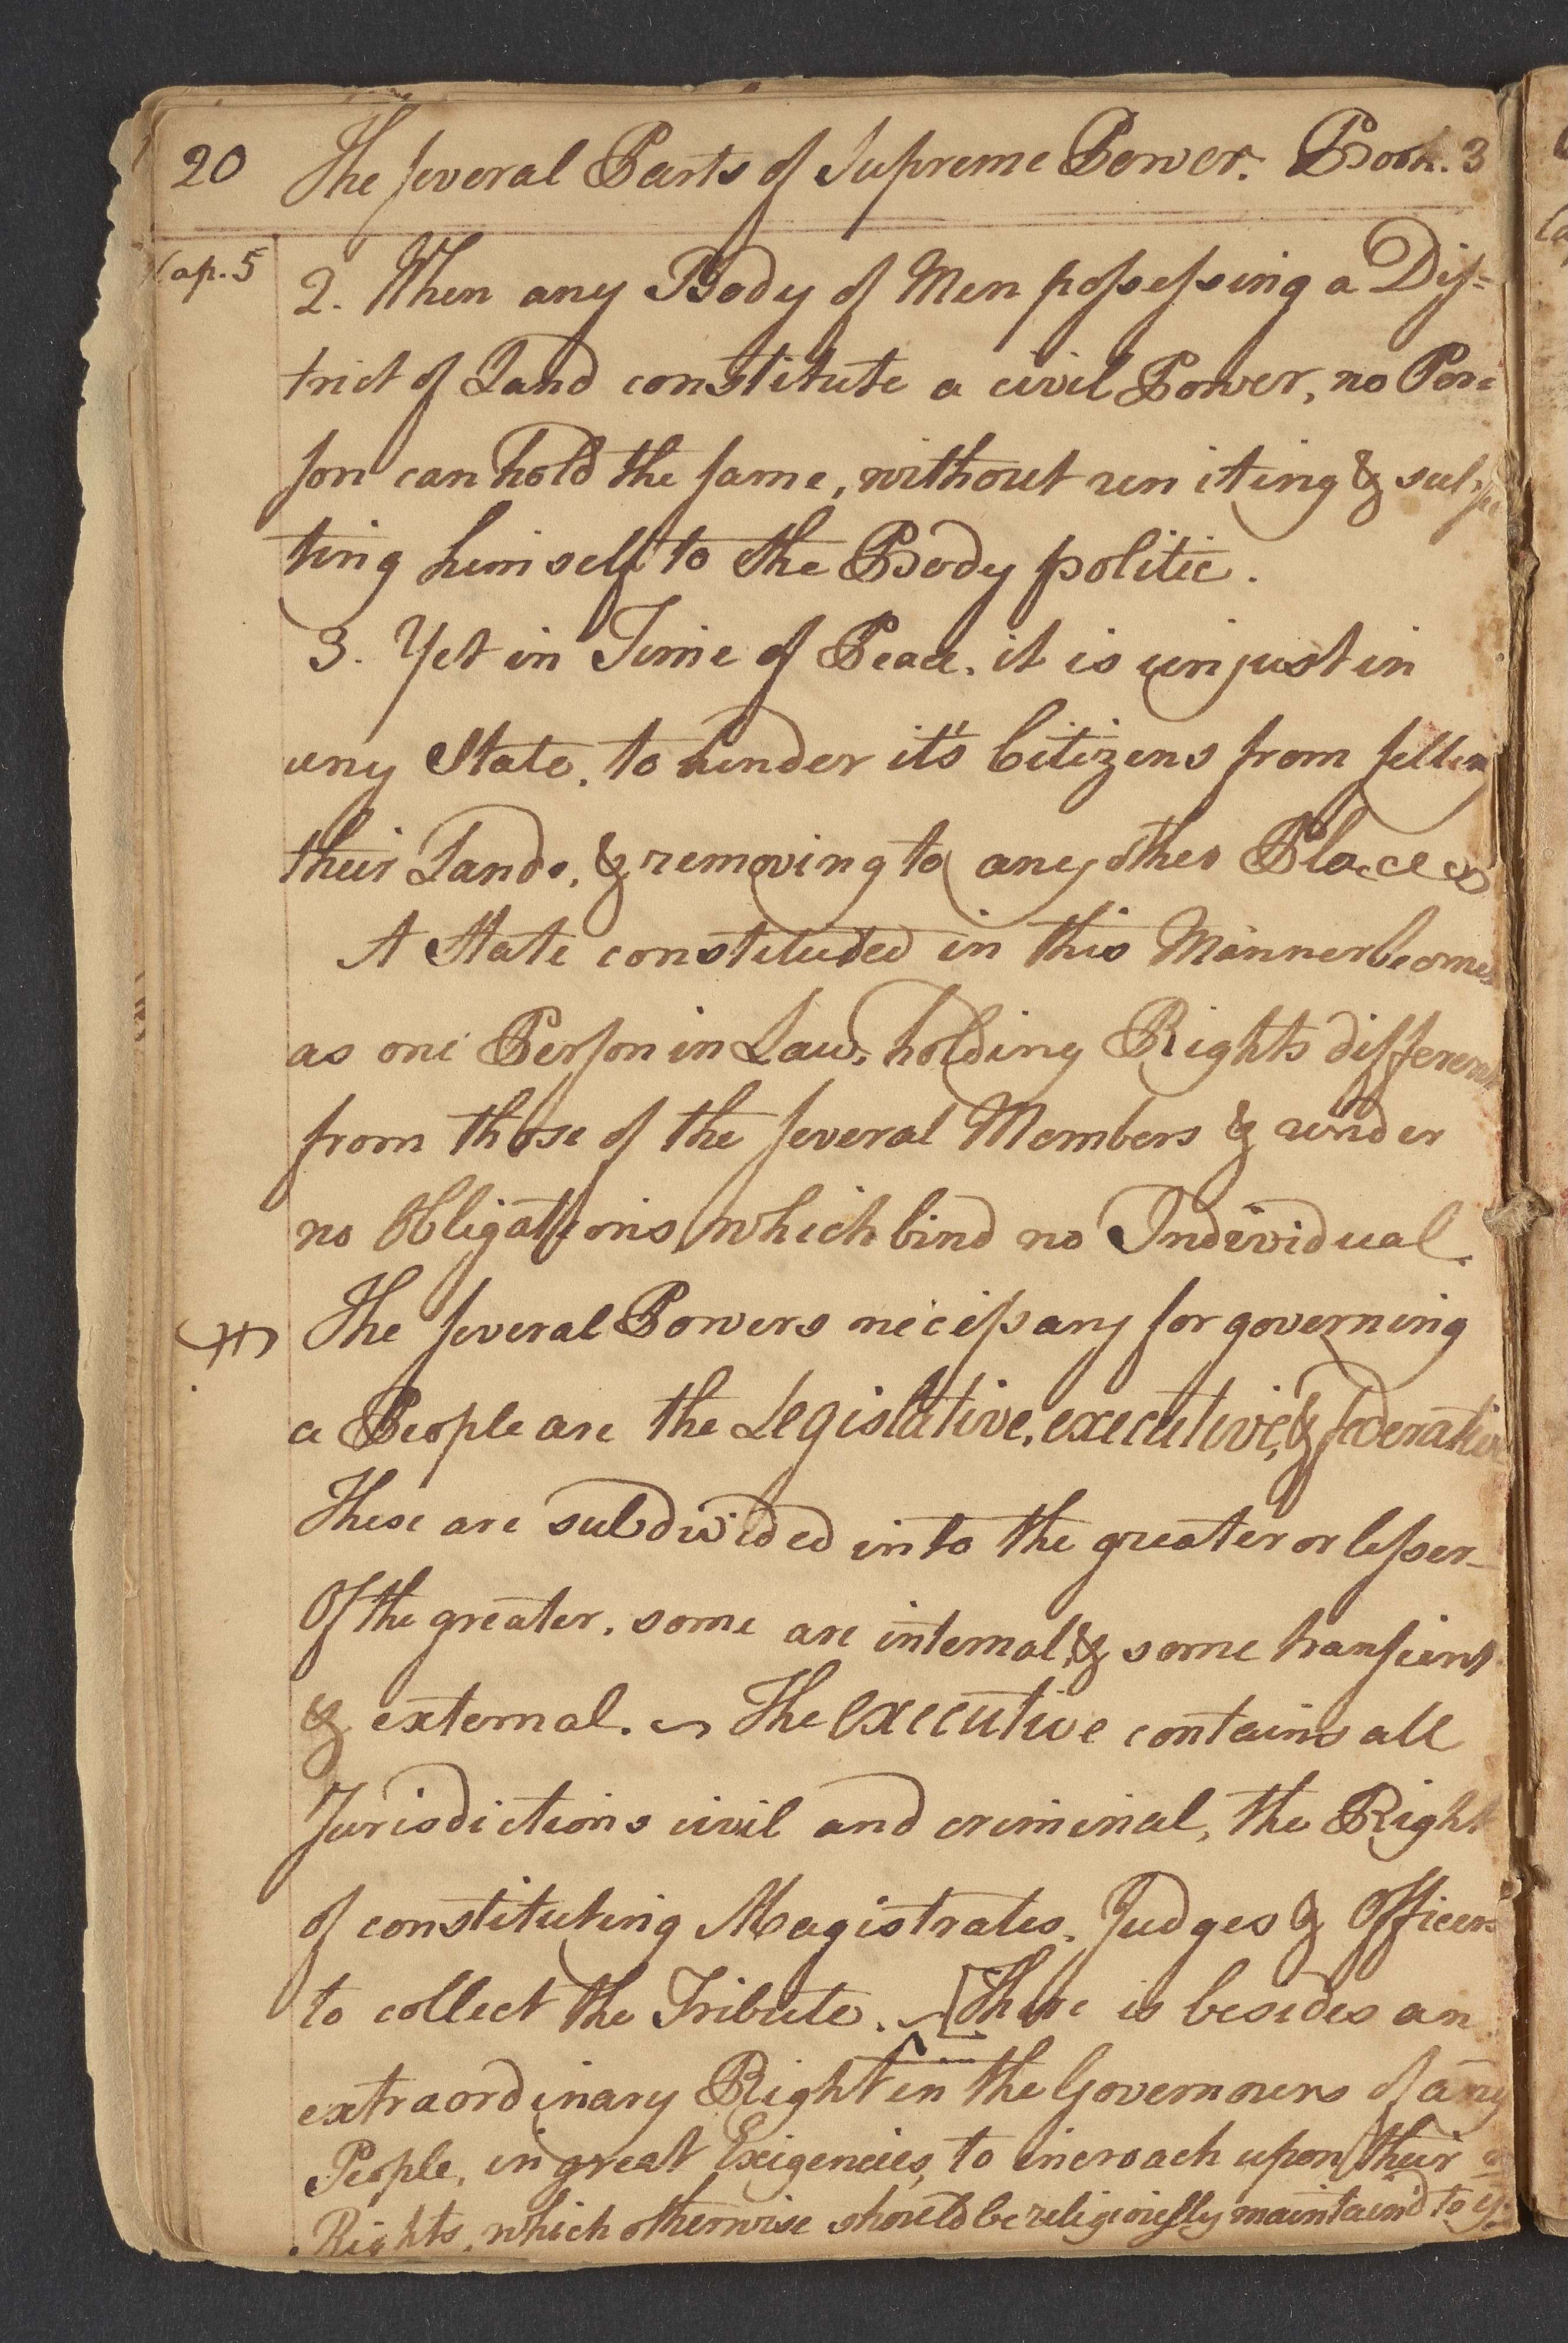 20 The several Parts of Supreme Power. Book. 3
Cap. 5
2. When any Body of Men possessing a Dis=
trict of Land constitute a civil Power, no Per=
son can hold the same, without uniting & subjec
ting himself to the Body politic.
3. Yet in Time of Peace, it is unjust in
any State, to hinder it's Citizens from selling
their Lands, & removing to any other Place
A State constituted in this Manner becomes
as one Person in Law, holding Rights different
from those of the several Members & under
no Obligations, which bind no Individual.
The several Powers necessary for governing
a People are the Legislative, executive, & federative
These are subdivided into the greater or lesser
Of the greater, some are internal, & some transient
& external. The executive contains all
Jurisdictions civil and criminal, the Right
of constituting Magistrates, Judges & Officers
to collect the Tribute. [There is besides an
extraordinary Right in the Governours of any
People, in great Exigencies, to incroach upon their
Rights, which otherwise should be religiously maintain'd to ym